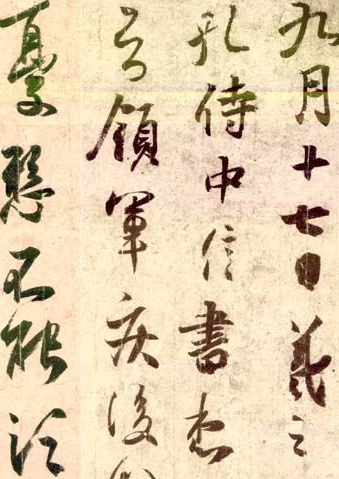 九月十七日羲之
孔侍中信書想
知領軍疾後
憂懸不能須